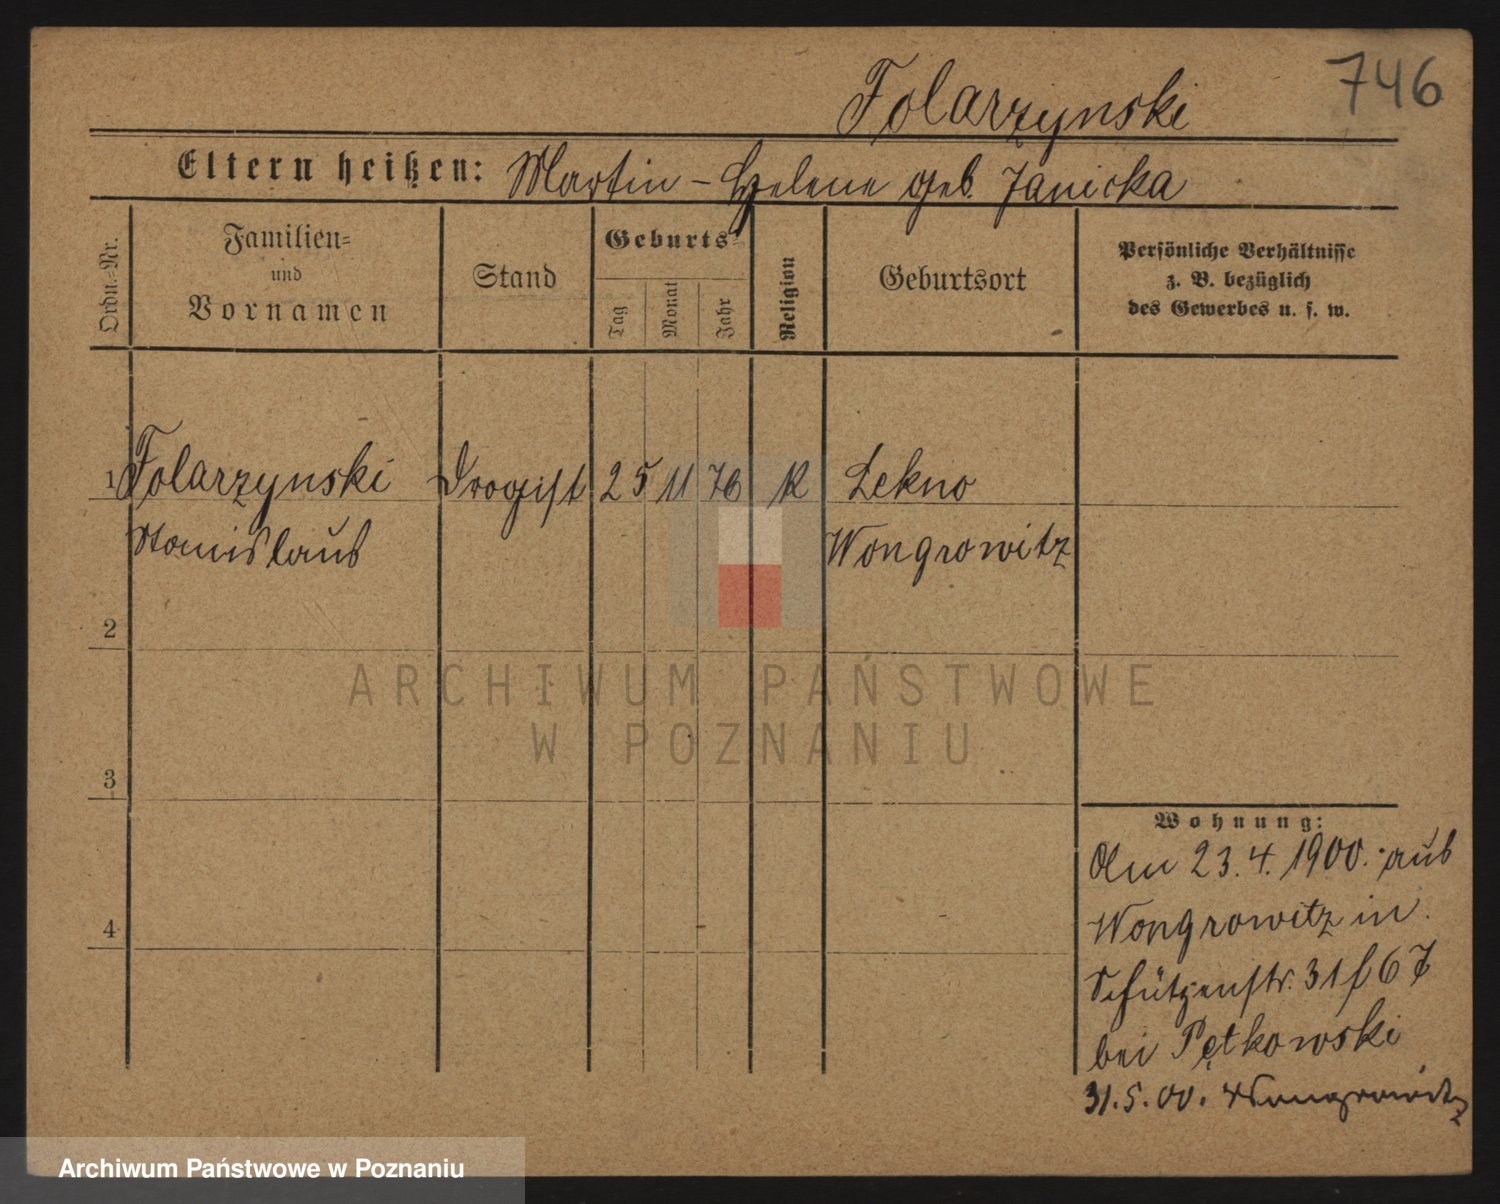 746
Folarzynski
Eltern heißen: Martin - Helene geb. Janicka
Ordn.=Nr.
Familien=
und
Vornamen
Stand
Geburts=
Tag
Monat
Jahr
Religion
Geburtsort
Persönliche Verhältnisse
z. B. bezüglich
des Gewerbes u. s. w.
1 Folarzynski Drogist 25 11 76 K Lekno
Stanislaus Wongrowitz
2
ARCHIWUM PAŃSTWOWE
W POZNANIU
3
Wohnung:
Am 23.4.1900. aus
4
Wongrowitz in
Schützenstr. 31
bei Pętkowski
31.5.00. Wongrowitz
Archiwum Państwowe w Poznaniu